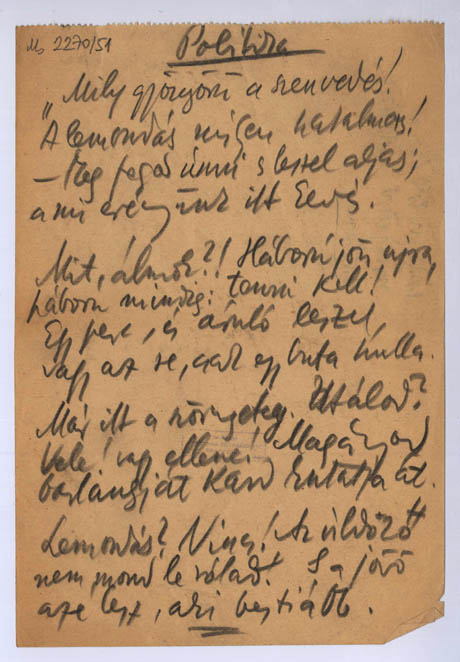 Ms 2270/51
Politika
„Mily gyönyörű a szenvedés!
A lemondás milyen hatalmas!
– Meg fogod únni s leszel aljas;
a mi erényünk itt kevés.
Mit, álmok?! Háború jön ujra,
háboru mindig: tenni kell!
Egy perc, és áruló leszel,
vagy az se, csak egy buta hulla.
Már itt a szörnyeteg. Utálod?
Vele! vagy ellene! Magányod
barlangját kard kutatja át.
Lemondás? Nincs! Az üldözött
nem mond le rólad! S a jövő
azé lesz, aki bestiább.